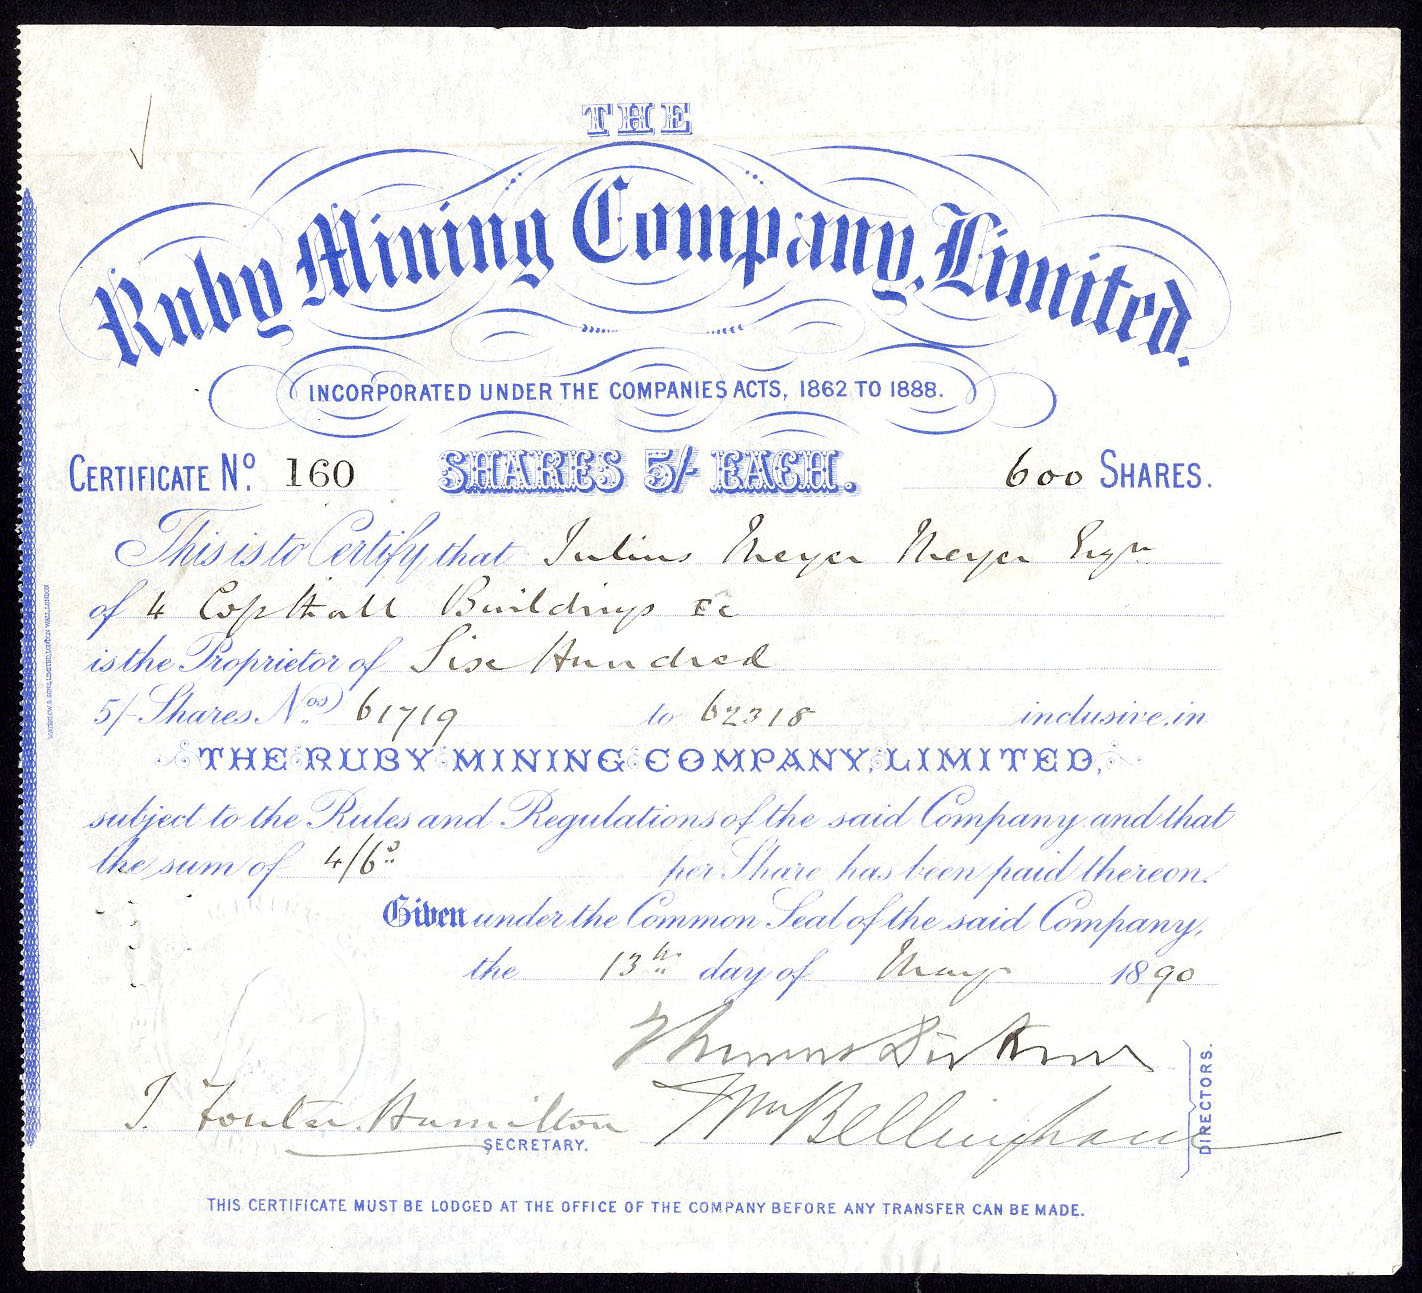 THE
Ruby Mining Company, Limited.
INCORPORATED UNDER THE COMPANIES ACTS, 1862 TO 1888.
CERTIFICATE No. 160 SHARES 5/- EACH. 600 SHARES.
This is to Certify that Julius Meyer Meyer Esqre
of 4 Copthall Buildings EC
is the Proprietor of Six Hundred
5/- Shares Nos. 61719 to 62318 inclusive, in
THE RUBY MINING COMPANY, LIMITED,
subject to the Rules and Regulations of the said Company and that
the sum of 4/6d per Share has been paid thereon.
Given under the Common Seal of the said Company,
the 13th day of May 1890
Thomas
J. Hamilton Wm Bellingham
SECRETARY.
DIRECTORS.
THIS CERTIFICATE MUST BE LODGED AT THE OFFICE OF THE COMPANY BEFORE ANY TRANSFER CAN BE MADE.
WATERLOW & SONS LIMITED, LONDON WALL, LONDON